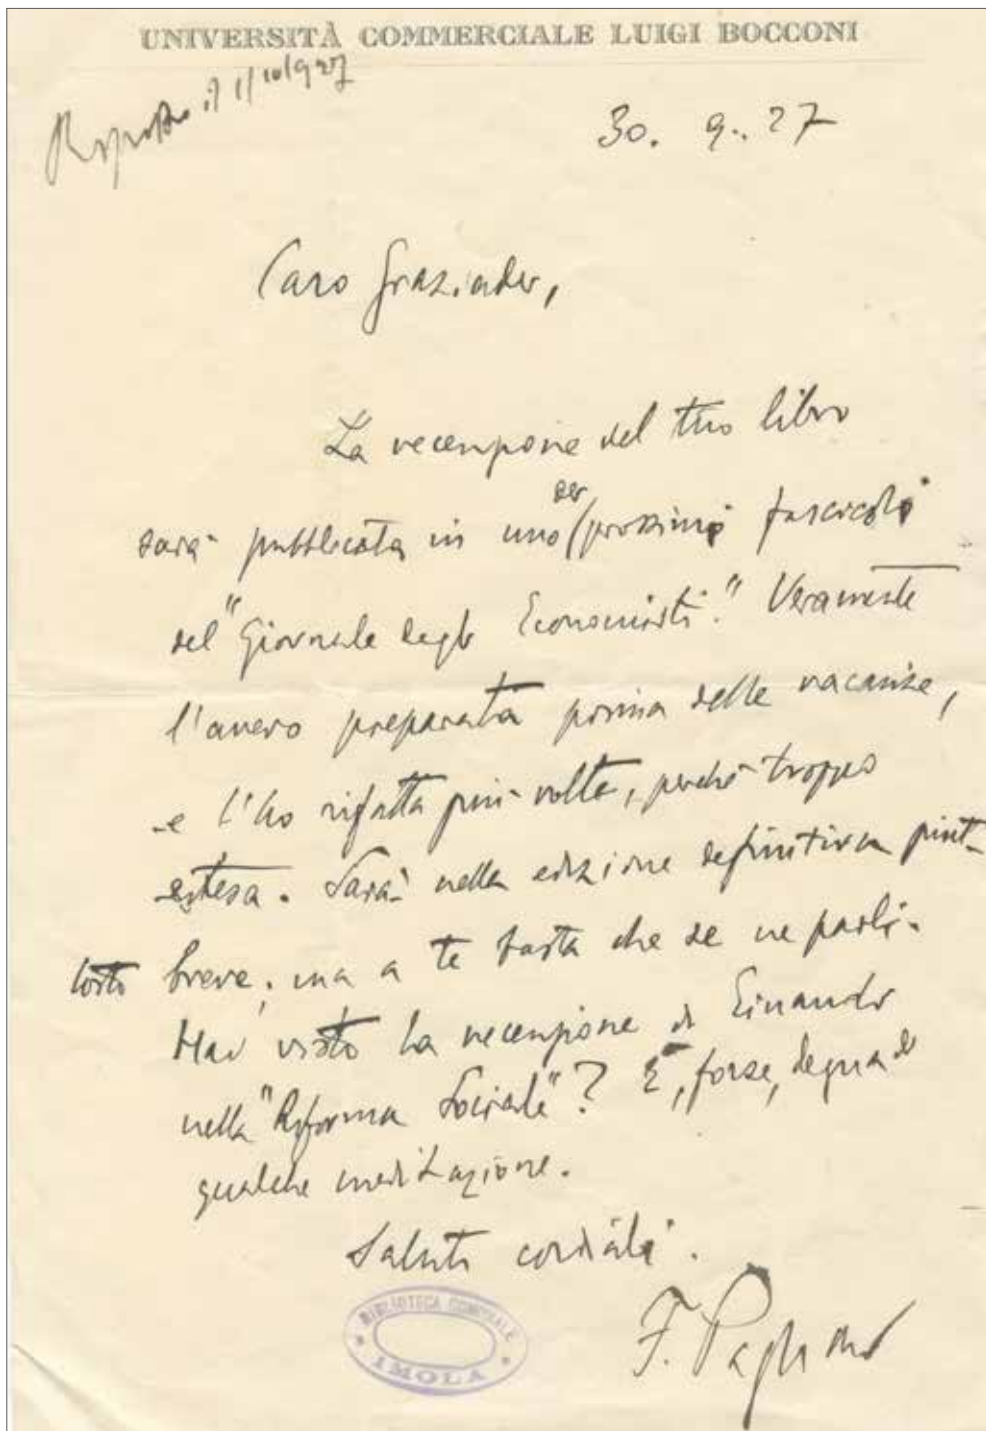 UNIVERSITÀ COMMERCIALE LUIGI BOCCONI
Risposto il 1/10/927
30. 9. 27
Caro Graziadei,
La recensione del tuo libro
sarà pubblicata in uno dei prossimi fascicoli
del "Giornale degli Economisti." Veramente
l'avevo preparata prima delle vacanze,
e l'ho rifatta più volte, perché troppo
estesa. Sarà nella edizione definitiva piut-
tosto breve; ma a te basta che se ne parli.
Hai visto la recensione di Einaudi
nella "Riforma Sociale"? È, forse, degna di
qualche meditazione.
Saluti cordiali.
F. Pagliani
BIBLIOTECA COMUNALE
IMOLA